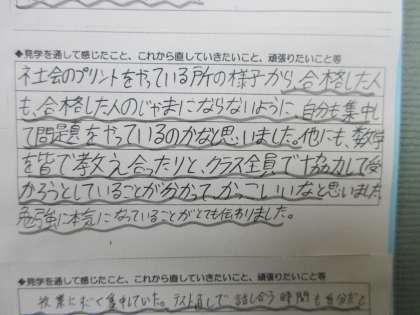 ◆見学を通して感じたこと、これから直していきたいこと、頑張りたいこと等
社会のプリントをやっている所の様子から、合格した人
も、合格した人のじゃまにならないように、自分も集中し
て問題をやっているのかなと思いました。他にも、数学
を皆で教え合ったりと、クラス全員で協力して受
かろうとしていることが分かって、かっこいいなと思いました。
勉強に本気になっていることがとても伝わりました。
◆見学を通して感じたこと、これから直していきたいこと、頑張りたいこと等
集中していた。テスト直しで話し合う時間も自分だと